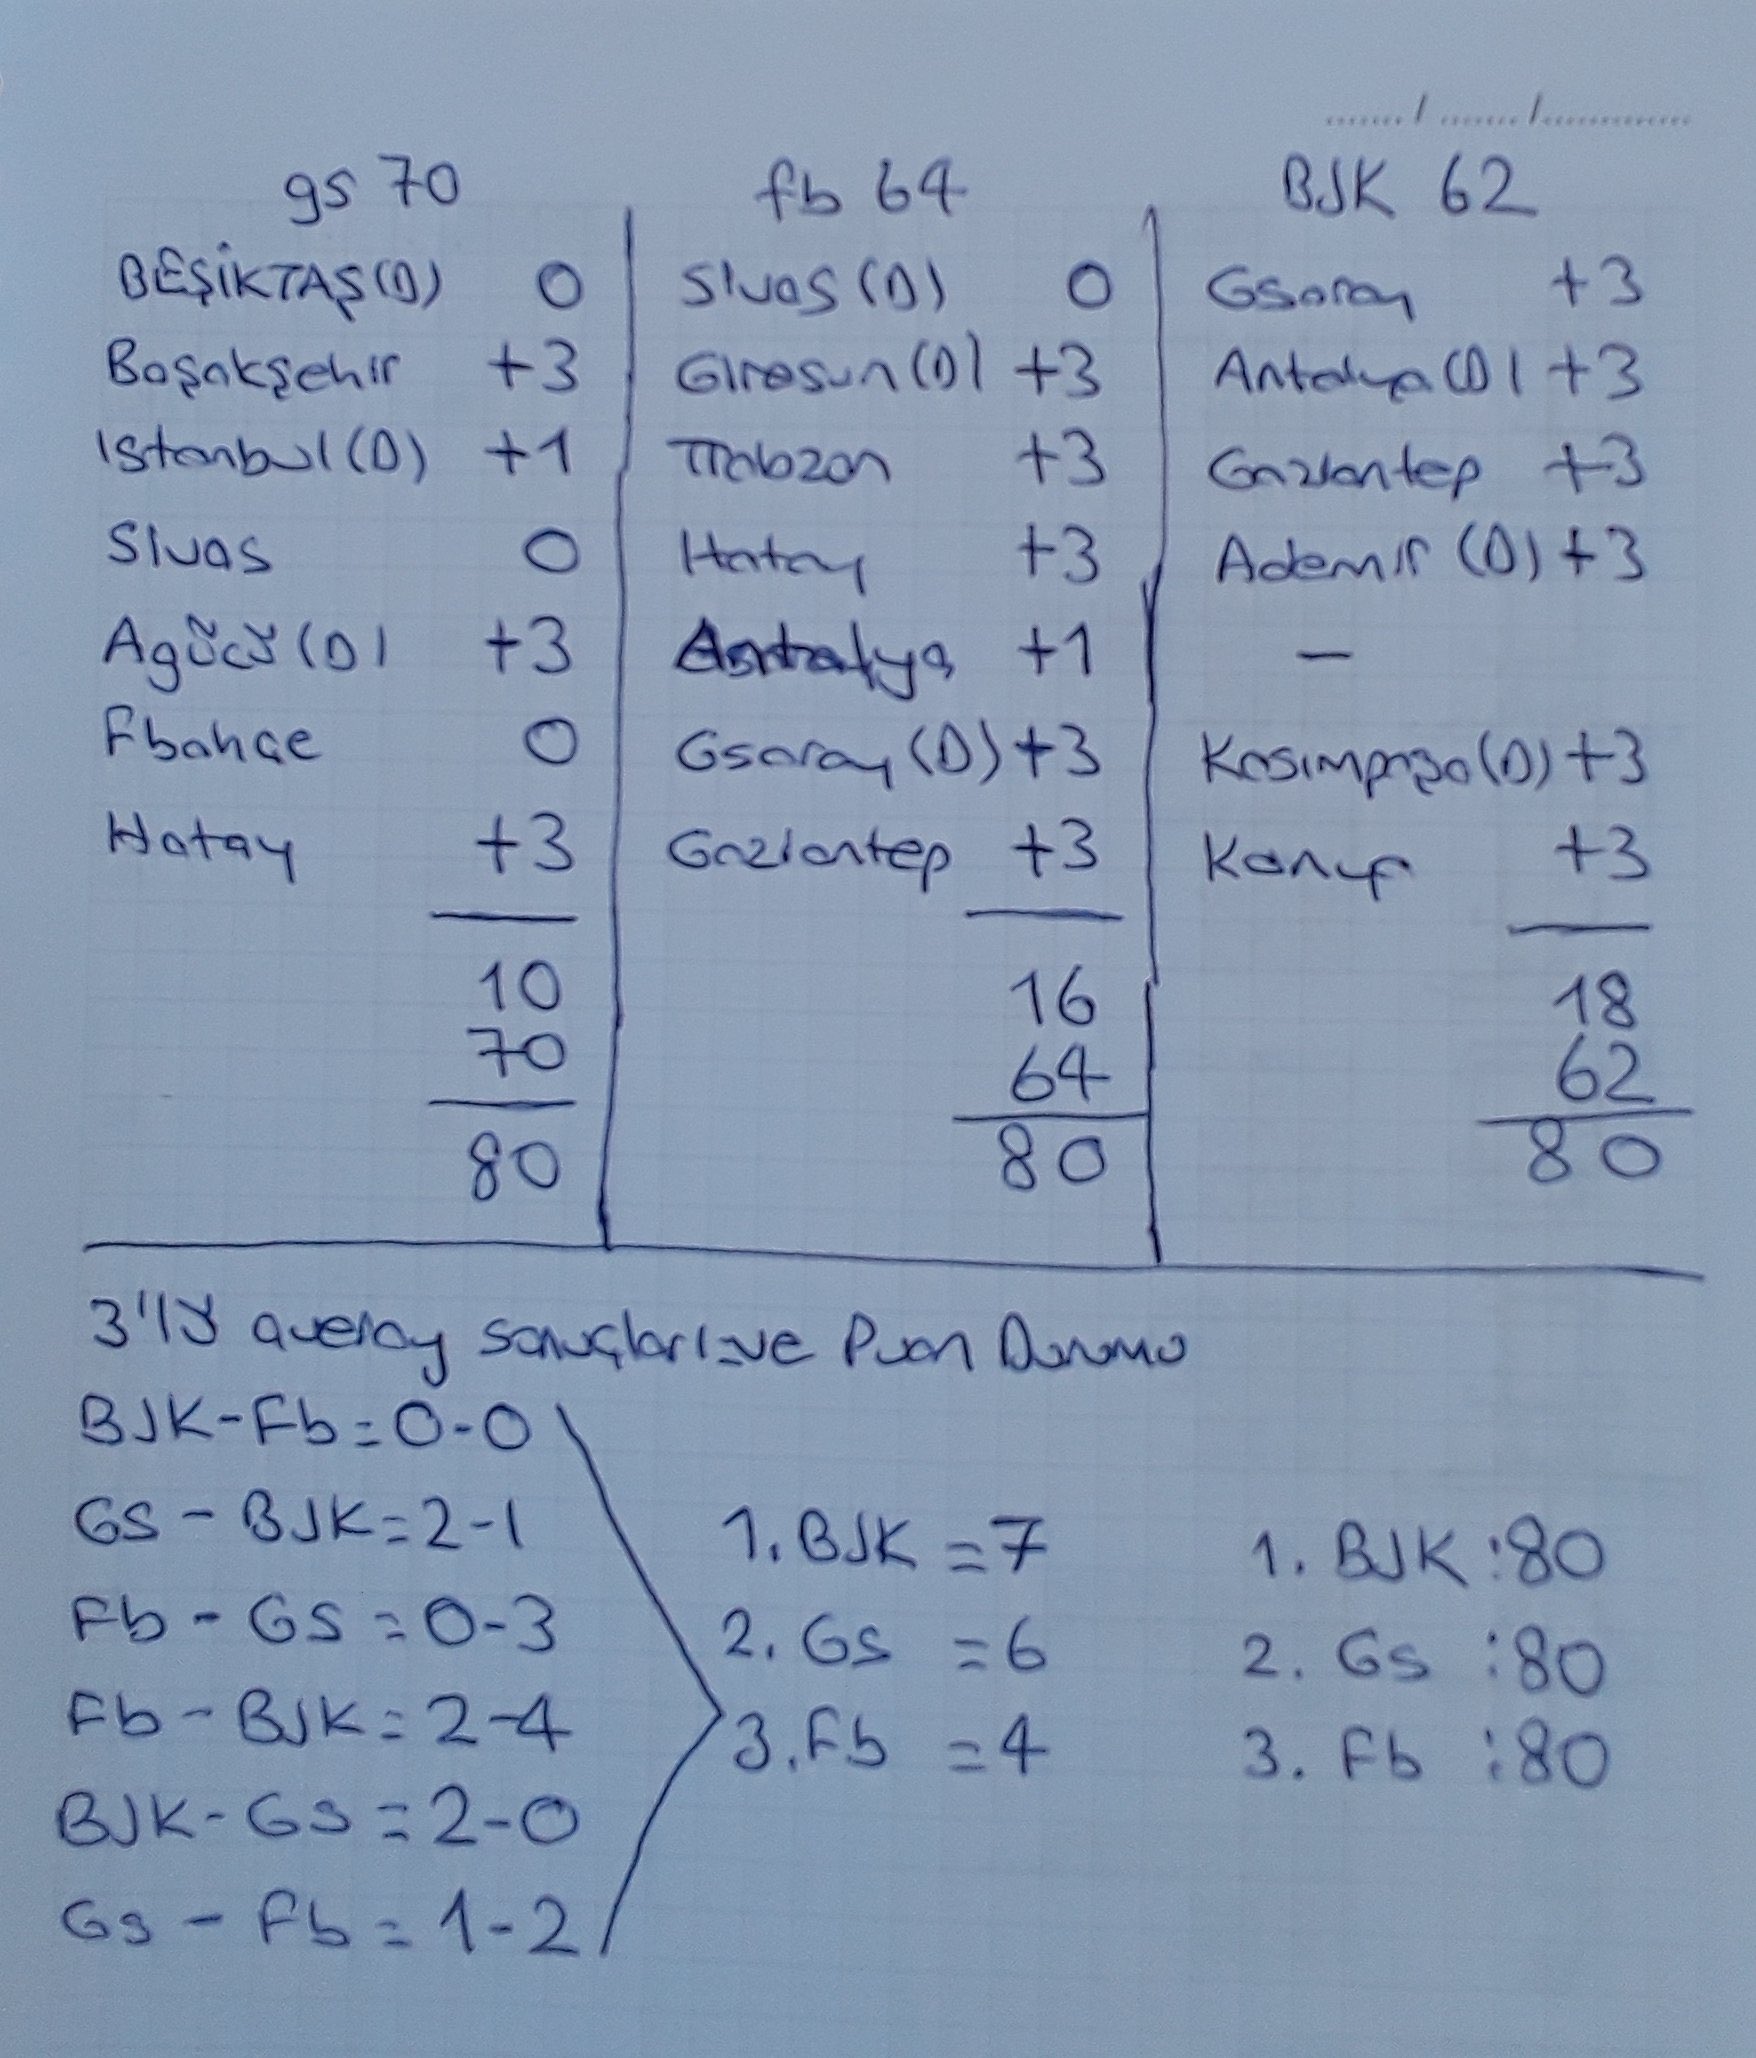 gs 70
BEŞİKTAŞ(D) 0
Başakşehir +3
Istanbul(D) +1
Sivas 0
Agücü(D) +3
Fbahçe 0
Hatay +3
10
70
80
fb 64
Sivas(D) 0
Giresun(D) +3
Trabzon +3
Hatay +3
Antalya +1
Gsaray(D) +3
Gaziantep +3
16
64
80
BJK 62
Gsaray +3
Antalya(D) +3
Gaziantep +3
Ademir(D) +3
-
Kasımpaşa(D) +3
Konya +3
18
62
80
3'lü averay sonuçları ve Puan Durumu
BJK-Fb=0-0
GS-BJK=2-1
Fb-GS=0-3
Fb-BJK=2-4
BJK-GS=2-0
Gs-Fb=1-2
1. BJK =7
2. Gs =6
3. Fb =4
1. BJK :80
2. Gs :80
3. Fb :80